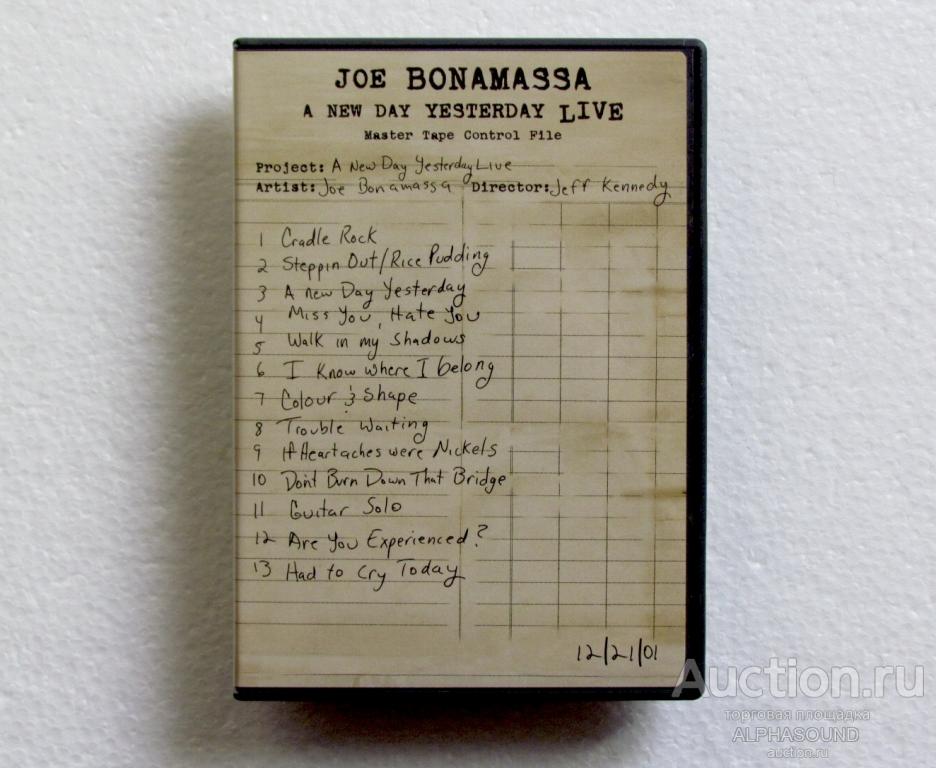 JOE BONAMASSA
A NEW DAY YESTERDAY LIVE
Master Tape Control File
Project: A New Day Yesterday Live
Artist: Joe Bonamassa Director: Jeff Kennedy
1 Cradle Rock
2 Steppin Out/Rice Pudding
3 A new Day Yesterday
4 Miss You, Hate You
5 Walk in my Shadows
6 I Know where I belong
7 Colour & Shape
8 Trouble Waiting
9 If Heartaches were Nickels
10 Don't Burn Down That Bridge
11 Guitar Solo
12 Are You Experienced?
13 Had to Cry Today
12/21/01
Auction.ru
торговая площадка
ALPHASOUND
auction.ru